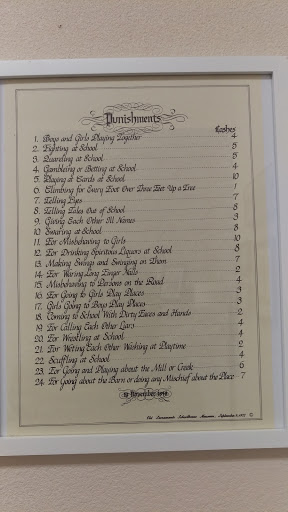 Punishments
Lashes
1. Boys and Girls Playing Together 4
2. Fighting at School 5
3. Quareling at School 5
4. Gambleing or Betting at School 4
5. Playing at Cards at School 10
6. Climbing for Every Foot Over Three Feet Up a Tree 1
7. Telling Lyes 7
8. Telling Tales Out of School 8
9. Giving Each Other Ill Names 3
10. Swaring at School 8
11. For Misbehaving to Girls 10
12. For Drinking Spiritous Liquors at School 8
13. Making Swings and Swinging on Them 7
14. For Waring Long Finger Nails 2
15. Misbehaving to Persons on the Road 4
16. For Going to Girls Play Places 3
17. Girls Going to Boys Play Places 3
18. Coming to School With Dirty Faces and Hands 2
19. For Calling Each Other Liars 4
20. For Wrestling at School 4
21. For Weting Each Other Washing at Playtime 2
22. Scuffling at School 4
23. For Going and Playing about the Mill or Creek 6
24. For Going about the Barn or doing any Mischief about the Place 7
November 1848
Old Schoolhouse Museum, September